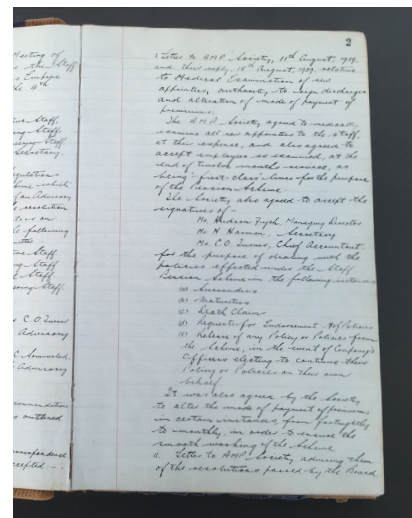 Meeting of
the Staff
Empire
the 4th
Staff.
Staff.
Staff.
Secretary.
which
an Advisory
resolution
following
Staff.
Staff
Staff
Staff.
C. O. Turner
Advisory
Advisory
as outlined
accepted -.
2
Letter to A.M.P. Society, 11th August, 1939.
and their reply, 18th August, 1939. relative
to Medical Examination of new
appointees, authority to sign discharges
and alteration of mode of payment of
premiums.
The A.M.P. Society agreed to medically
examine all new appointees to the staff,
at their expense, and also agreed to
accept employees so examined, at the
end of twelve months service, as
being "first-class" lives for the purpose
of the Pension Scheme.
The Society also agreed to accept the
signatures of -
Mr. Hudson Fysh, Managing Director
Mr. H. Harman, Secretary
Mr. C. O. Turner, Chief Accountant
for the purpose of dealing with the
policies effected under the Staff
Pension Scheme in the following instances
(a) Surrenders
(b) Maturities
(c) Death Claim
(d) Requests for Endorsement of Policies
(e) Release of any Policy or Policies from
the Scheme, in the event of Company's
Officers electing to continue their
Policy or Policies on their own
behalf.
It was also agreed by the Society
to alter the mode of payment of premiums
in certain instances, from fortnightly
to monthly, in order to ensure the
smooth working of the Scheme
11. Letter to A.M.P. Society advising them
of the resolutions passed by the Board